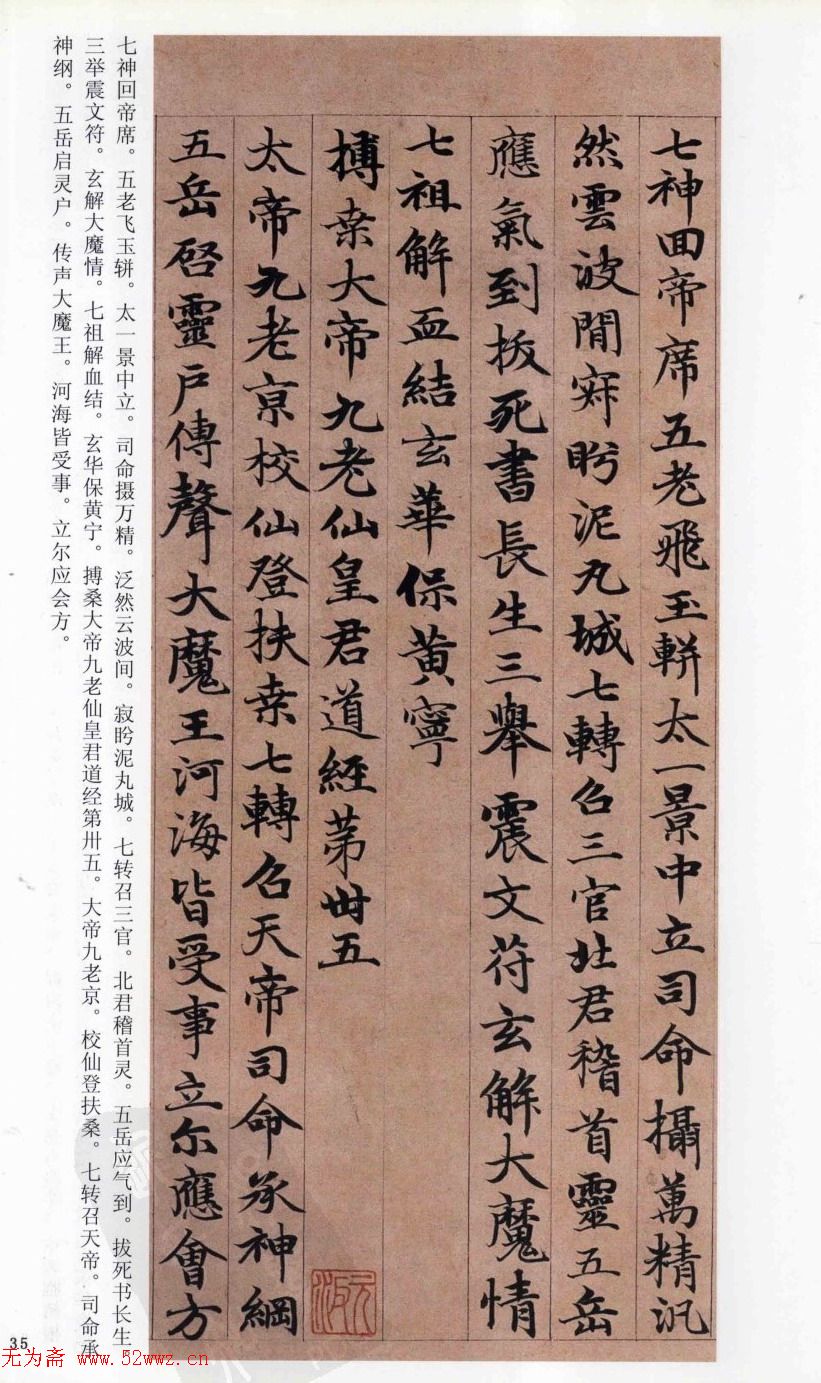 七神回帝席五老飛玉軿太一景中立司命攝萬精汎
然雲波間寂眄泥丸城七轉召三官北君稽首靈五岳
應氣到拔死書長生三舉震文符玄解大魔情
七祖解血結玄華保黃寧
搏桒大帝九老仙皇君道經苐卌五
太帝九老京校仙登扶桒七轉召天帝司命承神綱
五岳啓靈戶傳聲大魔王河海皆受事立尓應會方
七神回帝席。五老飞玉軿。太一景中立。司命摄万精。泛然云波间。寂眄泥丸城。七转召三官。北君稽首灵。五岳应气到。拔死书长生
三举震文符。玄解大魔情。七祖解血结。玄华保黄宁。搏桑大帝九老仙皇君道经第卅五。大帝九老京。校仙登扶桑。七转召天帝。司命承
神纲。五岳启灵户。传声大魔王。河海皆受事。立尔应会方。
35
无为斋 www.52wwz.cn